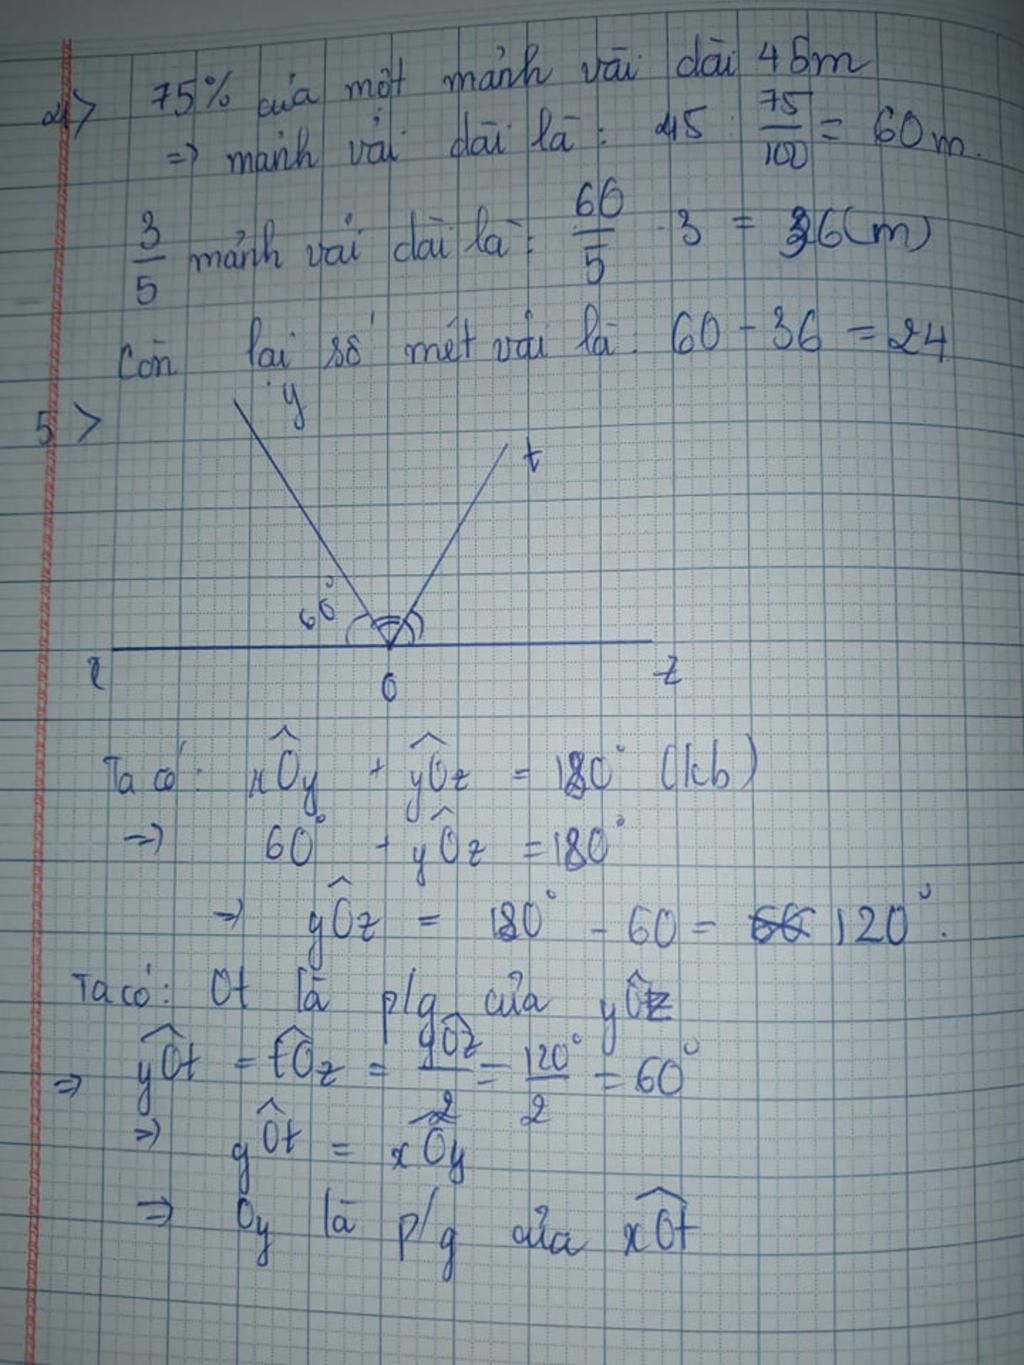 4> 75% của một mảnh vải dài 45m
=> mảnh vải dài là: 45 : 75/100 = 60m.
3/5 mảnh vải dài là: 60/5 . 3 = 36(m)
Còn lại số mét vải là: 60 - 36 = 24
5>
y
t
60°
x
O
z
Ta có: xÔy + yÔz = 180° (kb)
=> 60° + yÔz = 180°
=> yÔz = 180° - 60 = 120°.
Ta có: Ot là p/g của yÔz
=> yÔt = tÔz = yÔz/2 = 120°/2 = 60°
=> yÔt = xÔy
=> Oy là p/g của xÔt